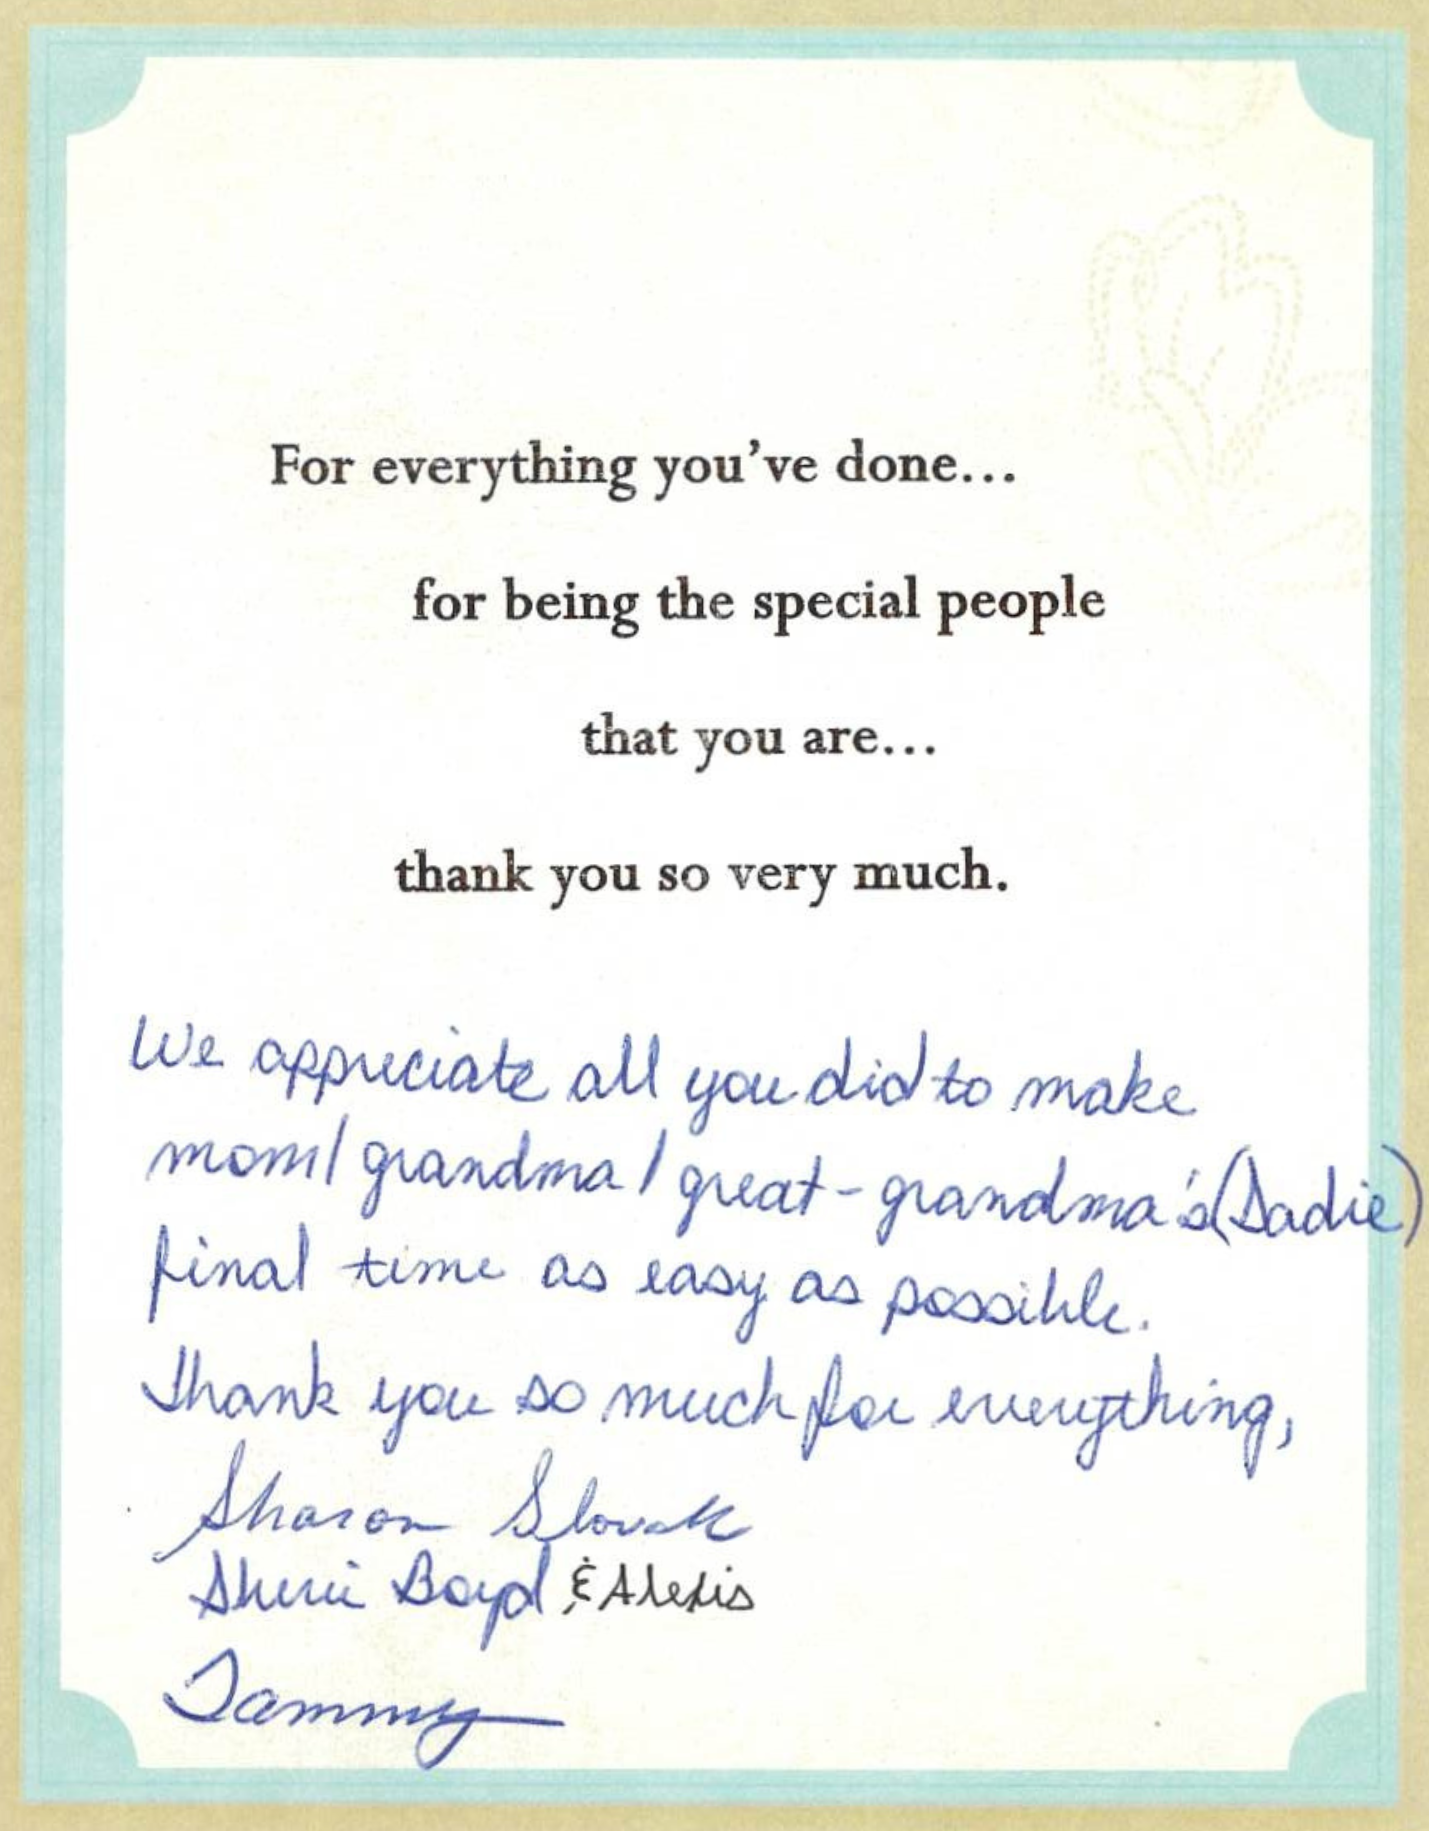 For everything you've done...
for being the special people
that you are...
thank you so very much.
We appreciate all you did to make
mom/grandma/great-grandma's (Sadie)
final time as easy as possible.
Thank you so much for everything,
Sharon Slovak
Sherri Boyd & Alexis
Tammy